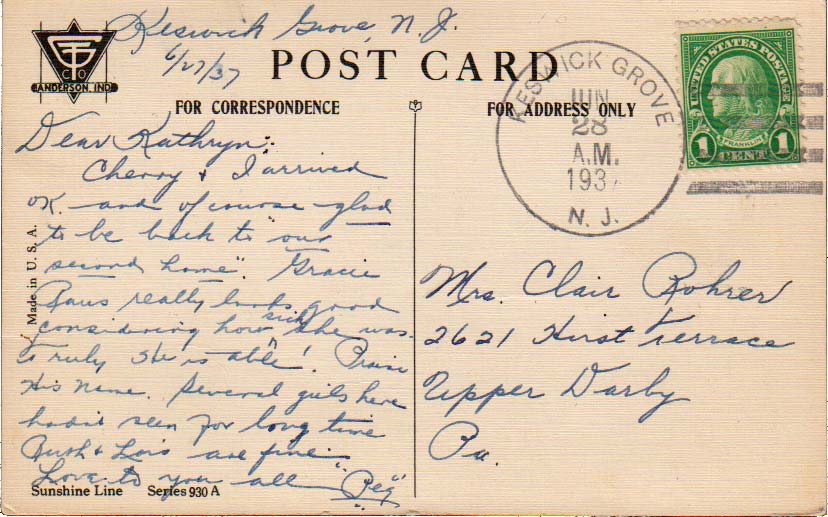 Keswick Grove, N.J.
6/27/37
GT
CO
ANDERSON, IND.
POST CARD
FOR CORRESPONDENCE
FOR ADDRESS ONLY
KESWICK GROVE
JUN
28
A.M.
193
N. J.
UNITED STATES POSTAGE
FRANKLIN
1 CENT 1
Dear Kathryn:
Cherry & I arrived
OK. and of course glad
to be back to "our
second home". Gracie
Raus really looks good
considering how sick she was.
Truly "He is able"! Praise
His Name. Several girls here
hadn't seen for long time
Ruth & Lois are fine.
Love to you all "Peg"
Made in U. S. A.
Mrs. Clair Rohrer
2621 Hirst Terrace
Upper Darby
Pa.
Sunshine Line Series 930 A